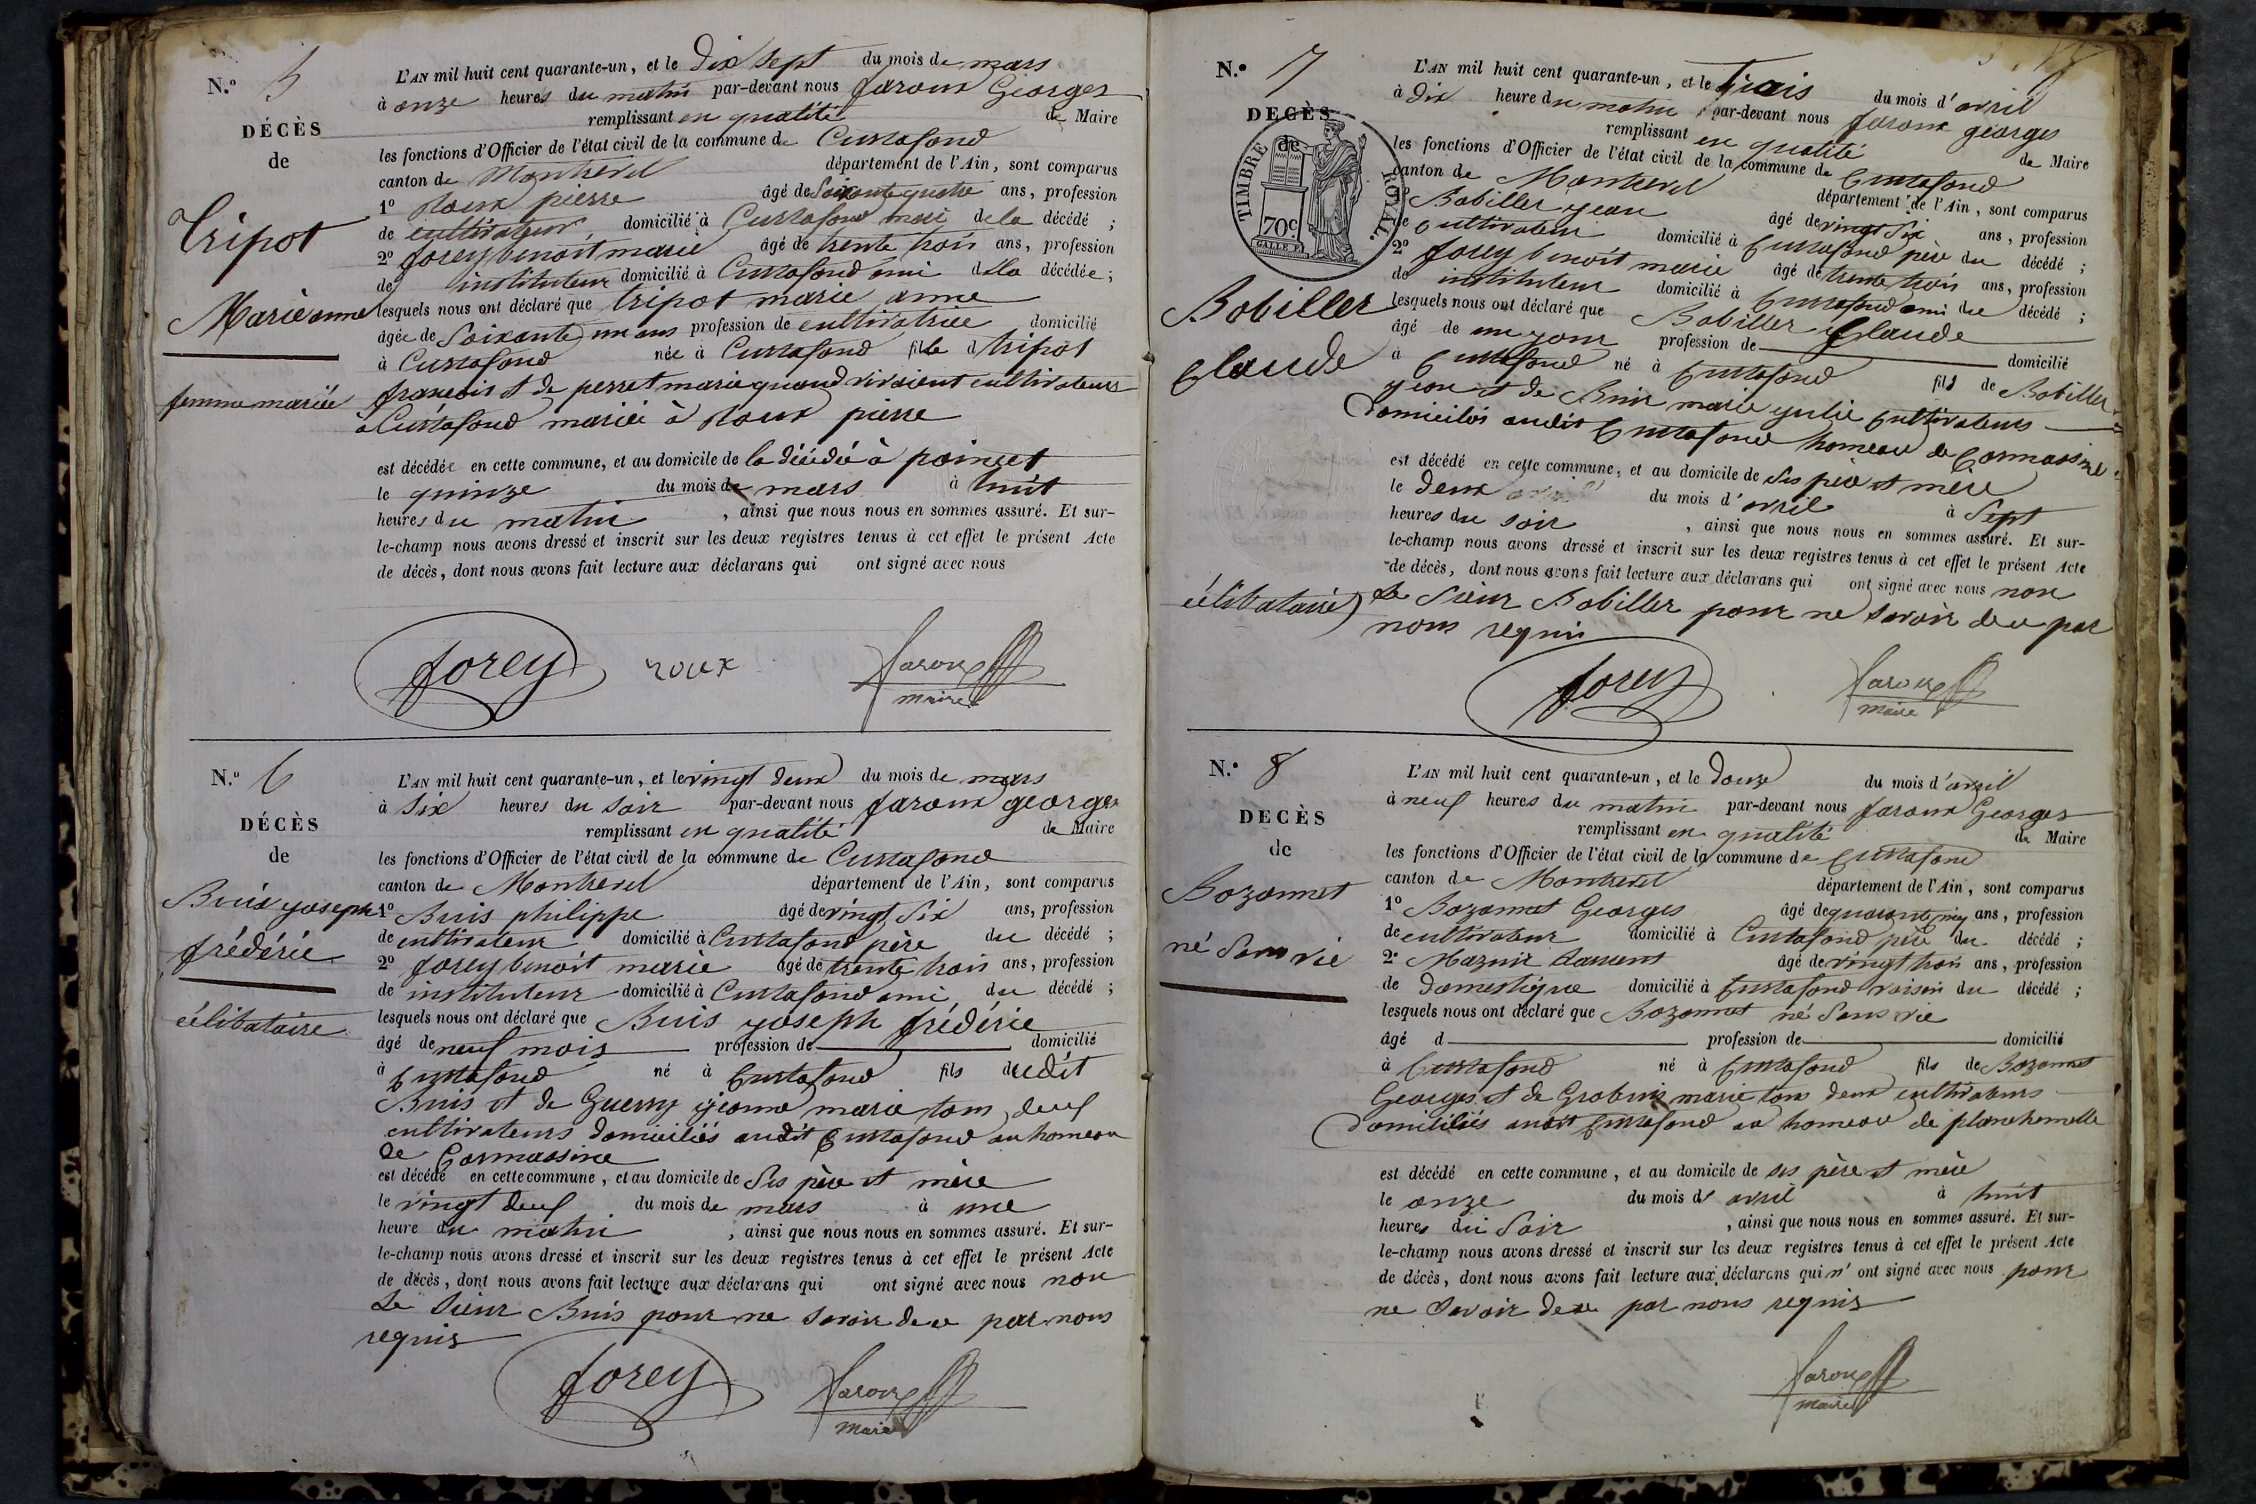 N.o 5
DÉCÈS
de
Tripot
Marie anne
femme mariée
L'AN mil huit cent quarante-un, et le Dix Sept du mois de mars
à onze heures du matin par-devant nous faroux Georges
remplissant en qualité de Maire
les fonctions d'Officier de l'état civil de la commune de Curtafond
canton de Montrevel département de l'Ain, sont comparus
1o Roux pierre âgé de Soixante quatre ans, profession
de cultivateur domicilié à Curtafond mari de la décédé ;
2o forey benoit marie âgé de trente trois ans, profession
de instituteur domicilié à Curtafond ami de la décédée ;
lesquels nous ont déclaré que tripot marie anne
âgée de Soixante un ans profession de cultivatrice domicilié
à Curtafond née à Curtafond fille d tripot
françois et de perret marie quand vivaient cultivateurs
à Curtafond mariée à Roux pierre
est décédée en cette commune, et au domicile de la décédée à poincet
le quinze du mois de mars à huit
heures du matin , ainsi que nous nous en sommes assuré. Et sur-
le-champ nous avons dressé et inscrit sur les deux registres tenus à cet effet le présent Acte
de décès, dont nous avons fait lecture aux déclarans qui ont signé avec nous
forey roux faroux
maire
N.o 6
DÉCÈS
de
Buis joseph
frédéric
célibataire
L'AN mil huit cent quarante-un, et le vingt deux du mois de mars
à Six heures du soir par-devant nous faroux georges
remplissant en qualité de Maire
les fonctions d'Officier de l'état civil de la commune de Curtafond
canton de Montrevel département de l'Ain, sont comparus
1o Buis philippe âgé de vingt Six ans, profession
de cultivateur domicilié à Curtafond père du décédé ;
2o forey benoit marie âgé de trente trois ans, profession
de instituteur domicilié à Curtafond ami du décédé ;
lesquels nous ont déclaré que Buis joseph frédéric
âgé de neuf mois profession de domicilié
à Curtafond né à Curtafond fils dudit
Buis et de Guerry jeanne marie tous deux
cultivateurs domiciliés audit Curtafond au hameau
de Cormassine
est décédé en cette commune, et au domicile de Ses père et mère
le vingt deux du mois de mars à une
heure du matin , ainsi que nous nous en sommes assuré. Et sur-
le-champ nous avons dressé et inscrit sur les deux registres tenus à cet effet le présent Acte
de décès, dont nous avons fait lecture aux déclarans qui ont signé avec nous non
le Sieur Buis pour ne savoir de ce par nous
requis
forey faroux
maire
N.o 7
DECÈS
de
TIMBRE ROYAL.
70c
GALLE F.
Bobiller
Claude
célibataire
L'AN mil huit cent quarante-un, et le trois du mois d'avril
à Dix heure du matin par-devant nous faroux georges
remplissant en qualité de Maire
les fonctions d'Officier de l'état civil de la commune de Curtafond
canton de Montrevel département de l'Ain, sont comparus
Bobiller jean âgé de vingt Six ans, profession
de cultivateur domicilié à Curtafond père du décédé ;
2o forey benoit marie âgé de trente trois ans, profession
de instituteur domicilié à Curtafond ami du décédé ;
lesquels nous ont déclaré que Bobiller Claude
âgé de un jour profession de domicilié
à Curtafond né à Curtafond fils de Bobiller
jean et de Buis marie julie Cultivateurs
Domiciliés audit Curtafond hameau de Cormassine
est décédé en cette commune, et au domicile de Ses père et mère
le deux du mois d'avril à Sept
heures du soir , ainsi que nous nous en sommes assuré. Et sur-
le-champ nous avons dressé et inscrit sur les deux registres tenus à cet effet le présent Acte
de décès, dont nous avons fait lecture aux déclarans qui ont signé avec nous non
le Sieur Bobiller pour ne savoir de ce par
nous requis
forey faroux
maire
N.o 8
DECÈS
de
Bozonnet
né Sans vie
L'AN mil huit cent quarante-un, et le douze du mois d'avril
à neuf heures du matin par-devant nous faroux Georges
remplissant en qualité de Maire
les fonctions d'Officier de l'état civil de la commune de Curtafond
canton de Montrevel département de l'Ain, sont comparus
1o Bozonnet Georges âgé de quarante cinq ans, profession
de cultivateur domicilié à Curtafond père du décédé ;
2o Mazuir Laurent âgé de vingt trois ans, profession
de domestique domicilié à Curtafond voisin du décédé ;
lesquels nous ont déclaré que Bozonnet né Sans vie
âgé d profession de domicilié
à Curtafond né à Curtafond fils de Bozonnet
Georges et de Grobuis marie tous deux cultivateurs
Domiciliés audit Curtafond au hameau de planchemelle
est décédé en cette commune, et au domicile de ses père et mère
le onze du mois d avril à huit
heures du Soir , ainsi que nous nous en sommes assuré. Et sur-
le-champ nous avons dressé et inscrit sur les deux registres tenus à cet effet le présent Acte
de décès, dont nous avons fait lecture aux déclarans qui n'ont signé avec nous pour
ne Savoir de ce par nous requis
faroux
maire